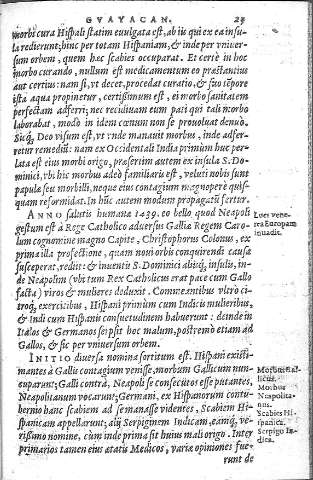 GVAYACAN. 23
morbi cura Hispali statim euulgata est, ab iis qui ex ea insu-
la redierunt; hinc per totam Hispaniam, & inde per vniuer-
sum orbem, quem hæc scabies occuparat. Et certè in hoc
morbo curando, nullum est medicamentum eo præstantius
aut certius: nam si, vt decet, procedat curatio, & suo tēpore
ista aqua propinetur, certissimum est, ei morbo sanitatem
perfectam adferri; nec recidiuam eum pati qui tali morbo
laborabat, modò in idem cœnum non se prouoluat denuò.
Sicq́; Deo visum est, vt vnde manauit morbus, inde adfer-
retur remediũ: nam ex Occidentali India primùm huc per-
lata est eius morbi origo, præsertim autem ex insula S. Do-
minici, vbi hic morbus adeò familiaris est, veluti nobis sunt
papulæ seu morbilli, neque eius contagium magnopere quis-
quam reformidat. In hũc autem modum propagatũ fertur.
ANNO salutis humanæ 1439. eo bello, quod Neapoli
gestum est à Rege Catholico aduersus Galliæ Regem Caro-
lum cognomine magno Capite, Christophorus Colonus, ex
prima illa profectione, quam noui orbis conquirendi causa
susceperat, redijt: & inuentis S. Dominici alijsq́; insulis, in-
de Neapolim (vbi tum Rex Catholicus erat pace cum Gallo
facta) viros & mulieres deduxit. Commeantibus vltrò ci-
troq́; exercitibus, Hispani primùm cum Indicis mulieribus,
& Indi cum Hispanis consuetudinem habuerunt: deinde in
Italos & Germanos serpsit hoc malum, postremò etiam ad
Gallos, & sic per vniuersum orbem.
INITIO diuersa nomina sortitum est. Hispani existi-
mantes à Gallis contagium venisse, morbum Gallicum nun-
cuparunt; Galli contrà, Neapoli se consecutos esse putantes,
Neapolitanum vocarunt; Germani, ex Hispanorum contu-
bernio hanc scabiem ad se manasse videntes, Scabiem Hi-
spanicam appellarunt; alij Serpiginem Indicam, eamq́; ve-
rissimo nomine, cùm inde prima sit huius mali origo. Inter
primarios tamen eius ætatis Medicos, variæ opiniones fue-
runt de
Lues vene-
rea Europam
inuadit.
Morbus Gal-
licus.
Morbus
Neapolita-
nus.
Scabies Hi-
spanica.
Serpigo In-
dica.